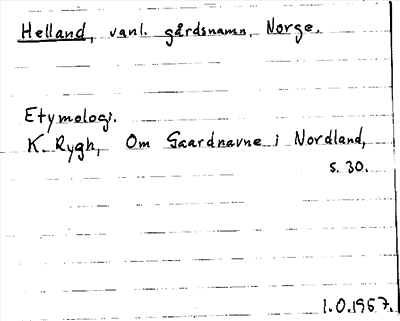 Helland, vanl. gårdsnamn, Norge.
Etymologi.
K. Rygh, Om Gaardnavne i Nordland,
s. 30.
1.0.1957.